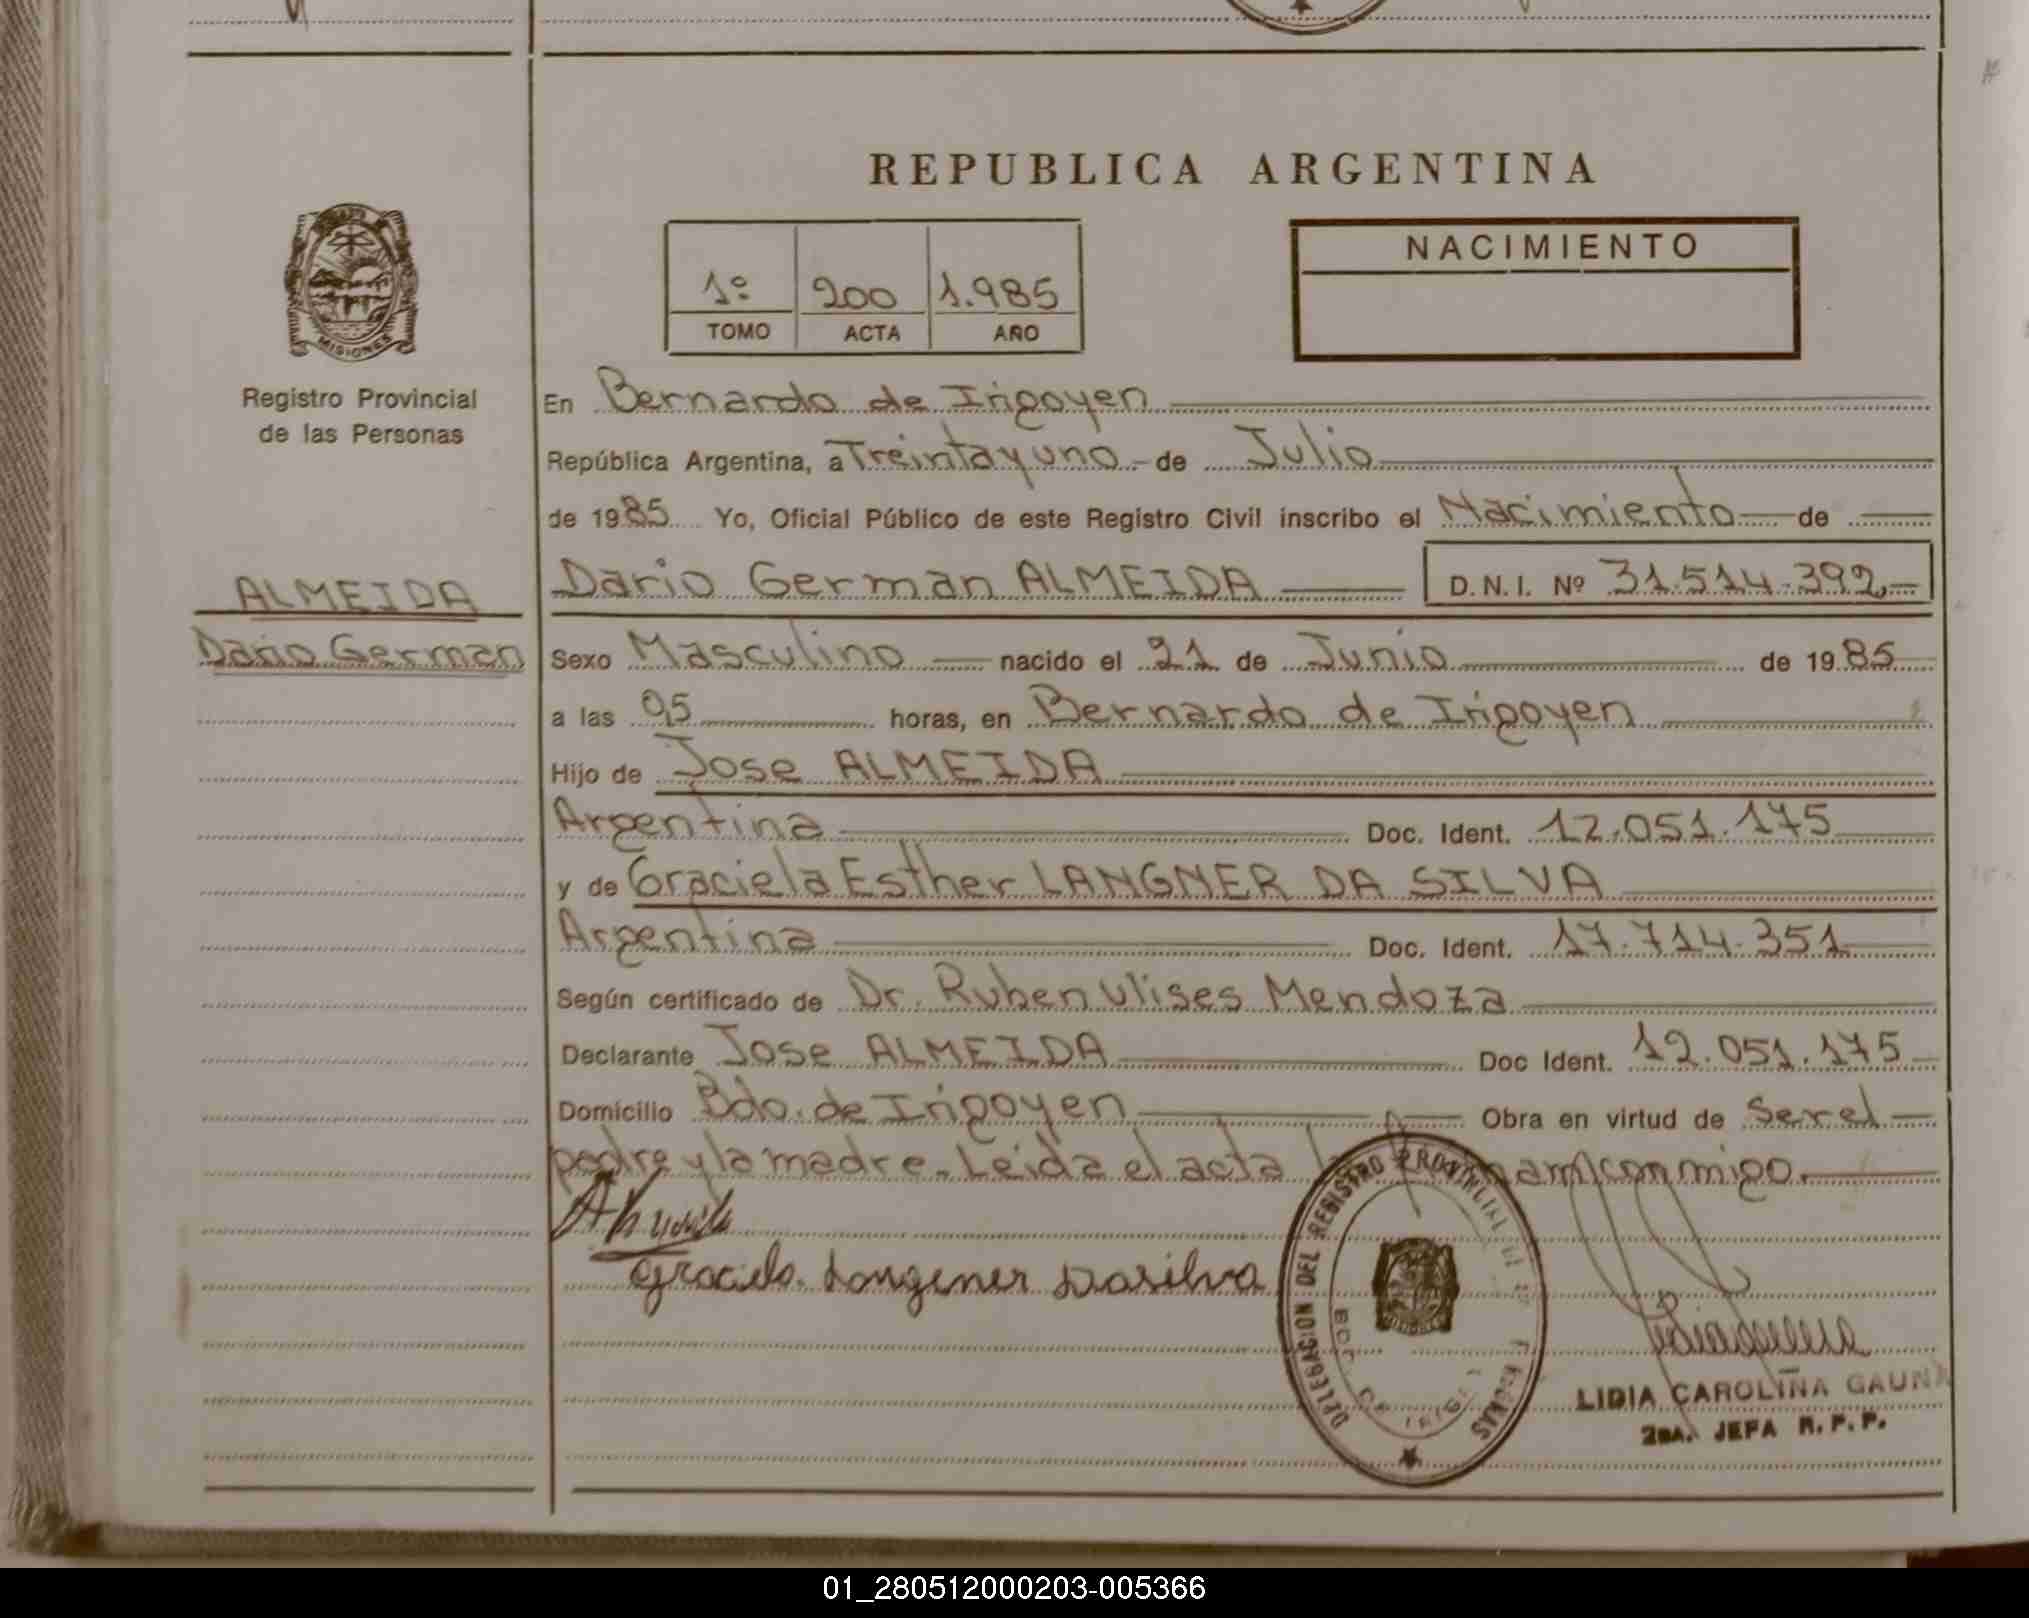 REPUBLICA ARGENTINA
MISIONES
Registro Provincial
de las Personas
1º 200 1.985
TOMO ACTA AÑO
NACIMIENTO
En Bernardo de Irigoyen
República Argentina, a Treinta y uno de Julio
de 1985 Yo, Oficial Público de este Registro Civil inscribo el Nacimiento de
ALMEIDA
Dario German
Dario German ALMEIDA D.N.I. Nº 31.514.392
Sexo Masculino nacido el 21 de Junio de 1985
a las 05 horas, en Bernardo de Irigoyen
Hijo de Jose ALMEIDA
Argentina Doc. Ident. 12.051.175
y de Graciela Esther LANGNER DA SILVA
Argentina Doc. Ident. 17.714.351
Según certificado de Dr. Ruben Ulises Mendoza
Declarante Jose ALMEIDA Doc Ident. 12.051.175
Domicilio Bdo. de Irigoyen Obra en virtud de Ser el
padre y la madre. Leida el acta conmigo.
Graciela Langener Dasilva
DELEGACION DEL REGISTRO PROVINCIAL DE LAS PERSONAS
BDO. DE IRIGOYEN
LIDIA CAROLINA GAUNA
2DA. JEFA R.P.P.
01_280512000203-005366